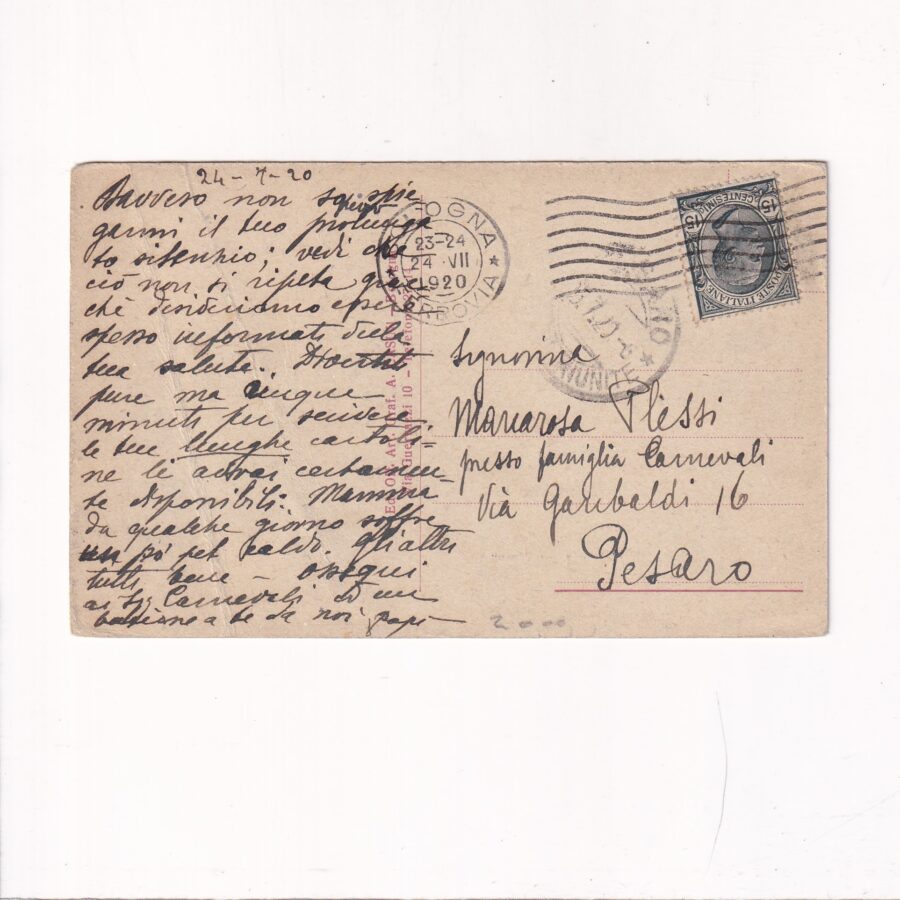 24-7-20
Davvero non so spie
garmi il tuo prolunga
to questo silenzio; vedi che
ciò non si ripeta giac
chè desideriamo essere
spesso informati della
tua salute.
pure ma cinque
minuti per scrivere
le tue lunghe cartoli-
ne li avrai certamen-
te disponibili. Mamma
da qualche giorno soffre
un pò pel caldo. Gli altri
tutti bene - ossequi
ai Sig. Carnevali ed un
bacione a te da noi papà
BOLOGNA
23-24
24 VII
1920
FERROVIA
PESARO
RIUNITE
15 CENTESIMI 15
POSTE ITALIANE
Signorina
Mariarosa Plessi
presso famiglia Carnevali
Via Garibaldi 16
Pesaro
2000